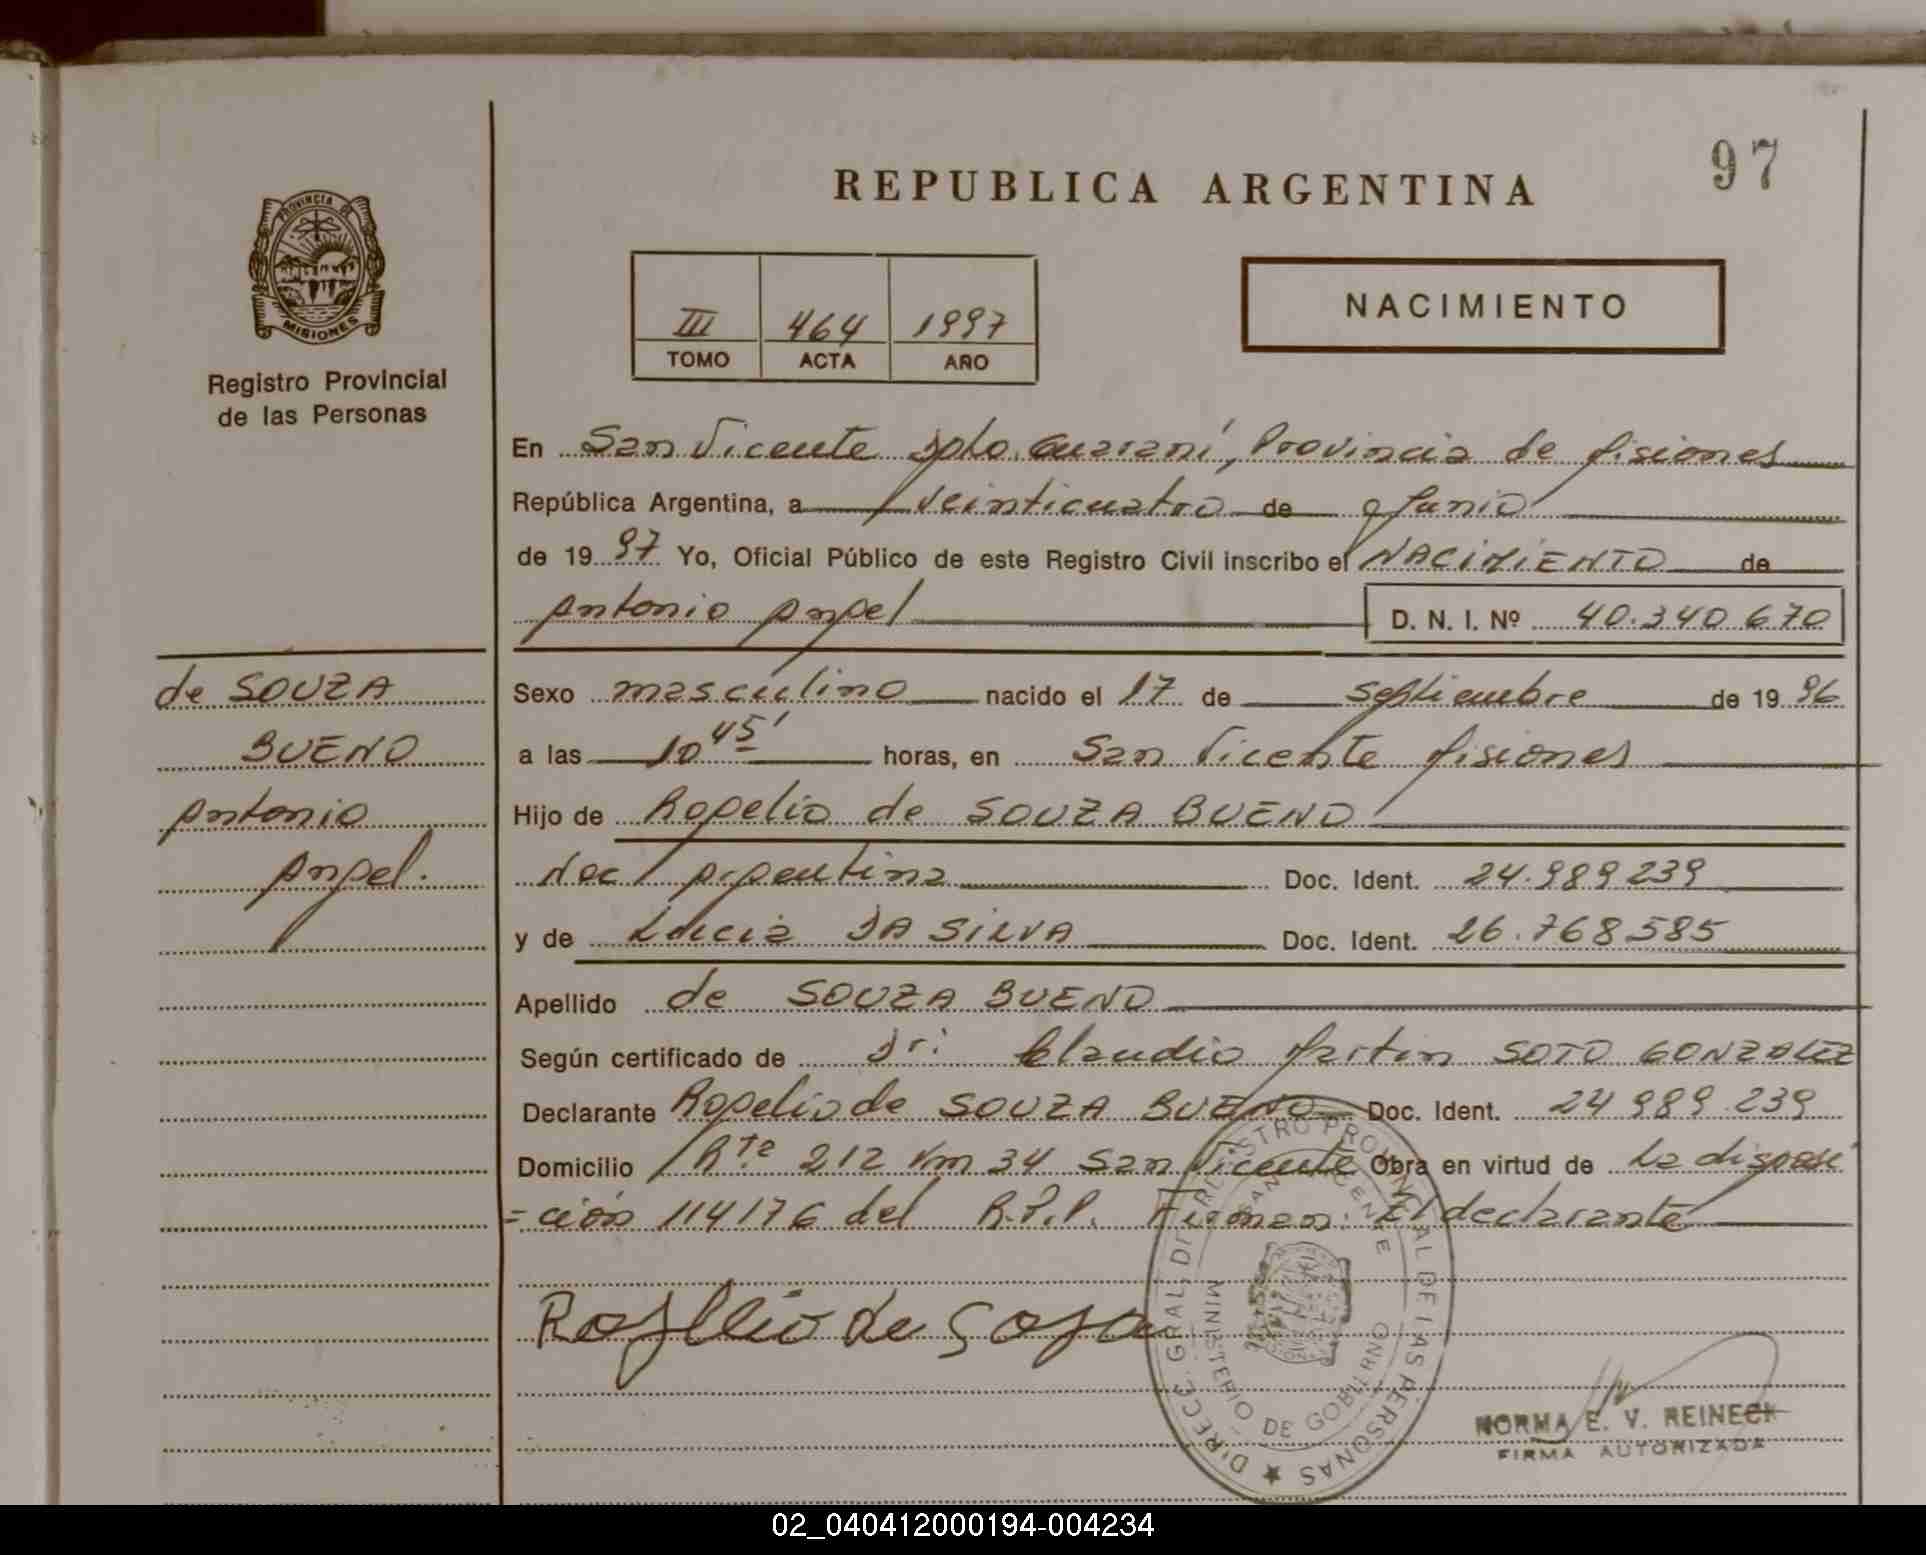 97
REPUBLICA ARGENTINA
PROVINCIA DE
MISIONES
Registro Provincial
de las Personas
III 464 1997
TOMO ACTA AÑO
NACIMIENTO
En San Vicente Dpto. Guaraní, Provincia de Misiones
República Argentina, a veinticuatro de Junio
de 1997 Yo, Oficial Público de este Registro Civil inscribo el NACIMIENTO de
Antonio Angel D. N. I. Nº 40.340.670
de SOUZA
BUENO
Antonio
Angel.
Sexo masculino nacido el 17 de septiembre de 1996
a las 10 45' horas, en San Vicente Misiones
Hijo de Rogelio de SOUZA BUENO
Nac Argentina Doc. Ident. 24.989.239
y de Lucia DA SILVA Doc. Ident. 26.768.585
Apellido de SOUZA BUENO
Según certificado de Dr: Claudio Martin SOTO GONZALEZ
Declarante Rogelio de SOUZA BUENO Doc. Ident. 24.989.239
Domicilio Rta 212 Km 34 San Vicente Obra en virtud de la disposi
=ción 114176 del R.P.P. Firman. El declarante
DIRECC. GRAL. DEL REGISTRO PROVINCIAL DE LAS PERSONAS
SAN VICENTE
MINISTERIO DE GOBIERNO
NORMA E. V. REINECK
FIRMA AUTORIZADA
02_040412000194-004234